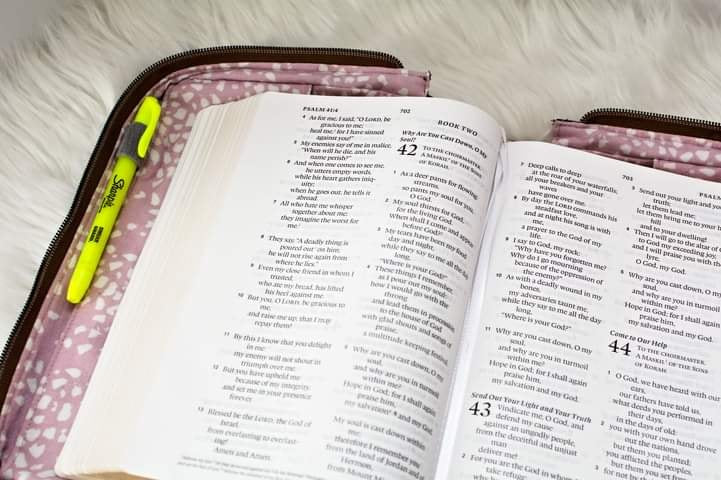 Sharpie
PSALM 41:4
702
4 As for me, I said, "O LORD, be
gracious to me;
heal me, for I have sinned
against you!"
5 My enemies say of me in malice,
"When will he die, and his
name perish?"
6 And when one comes to see me,
he utters empty words,
while his heart gathers iniq-
uity;
when he goes out, he tells it
abroad.
7 All who hate me whisper
together about me;
they imagine the worst for
me.
8 They say, "A deadly thing is
poured out on him;
he will not rise again from
where he lies."
9 Even my close friend in whom I
trusted,
who ate my bread, has lifted
his heel against me.
10 But you, O LORD, be gracious to
me,
and raise me up, that I may
repay them!
11 By this I know that you delight
in me:
my enemy will not shout in
triumph over me.
12 But you have upheld me
because of my integrity,
and set me in your presence
forever.
13 Blessed be the LORD, the God of
Israel,
from everlasting to everlast-
ing!
Amen and Amen.
BOOK TWO
Why Are You Cast Down, O My
Soul?
42 TO THE CHOIRMASTER.
A MASKIL OF THE SONS
OF KORAH.
1 As a deer pants for flowing
streams,
so pants my soul for you,
O God.
2 My soul thirsts for God,
for the living God.
When shall I come and appear
before God?
3 My tears have been my food
day and night,
while they say to me all the day
long,
"Where is your God?"
4 These things I remember,
as I pour out my soul:
how I would go with the
throng
and lead them in procession
to the house of God
with glad shouts and songs of
praise,
a multitude keeping festival.
5 Why are you cast down, O my
soul,
and why are you in turmoil
within me?
Hope in God; for I shall again
praise him,
my salvation 6 and my God.
My soul is cast down within
me;
therefore I remember you
from the land of Jordan and of
Hermon,
from Mount
703
7 Deep calls to deep
at the roar of your waterfalls;
all your breakers and your
waves
have gone over me.
8 By day the LORD commands his
steadfast love,
and at night his song is with
me,
a prayer to the God of my
life.
9 I say to God, my rock:
"Why have you forgotten me?
Why do I go mourning
because of the oppression of
the enemy?"
10 As with a deadly wound in my
bones,
my adversaries taunt me,
while they say to me all the day
long,
"Where is your God?"
11 Why are you cast down, O my
soul,
and why are you in turmoil
within me?
Hope in God; for I shall again
praise him,
my salvation and my God.
Send Out Your Light and Your Truth
43 Vindicate me, O God, and
defend my cause
against an ungodly people,
from the deceitful and unjust
man
deliver me!
2 For you are the God in whom I
take refuge;
3 Send out your light and your
truth;
let them lead me;
let them bring me to your holy
and to your dwelling!
4 Then I will go to the altar of
to God my exceeding joy,
and I will praise you with the
O God, my God.
5 Why are you cast down, O my
soul,
and why are you in turmoil
within me?
Hope in God; for I shall again
praise him,
my salvation and my God.
Come to Our Help
44 TO THE CHOIRMASTER.
A MASKIL OF THE SONS
1 O God, we have heard with our
ears,
our fathers have told us,
what deeds you performed in
their days,
in the days of old:
2 you with your own hand drove
out the nations,
but them you planted;
you afflicted the peoples,
but them you set free;
3 for not by their